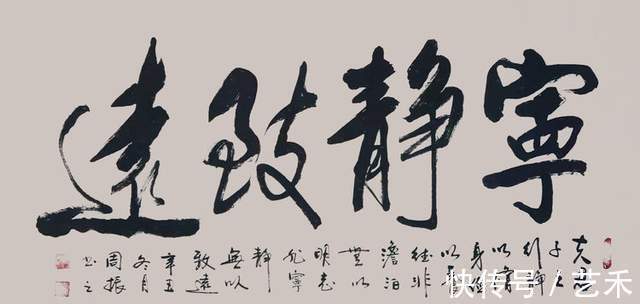 寧靜致遠
夫君
子之
行静
以
身
以
德非
澹泊
無以
明志
非寧
靜
無以
致遠
辛丑
冬月
周振
书之
快传号 / 艺禾